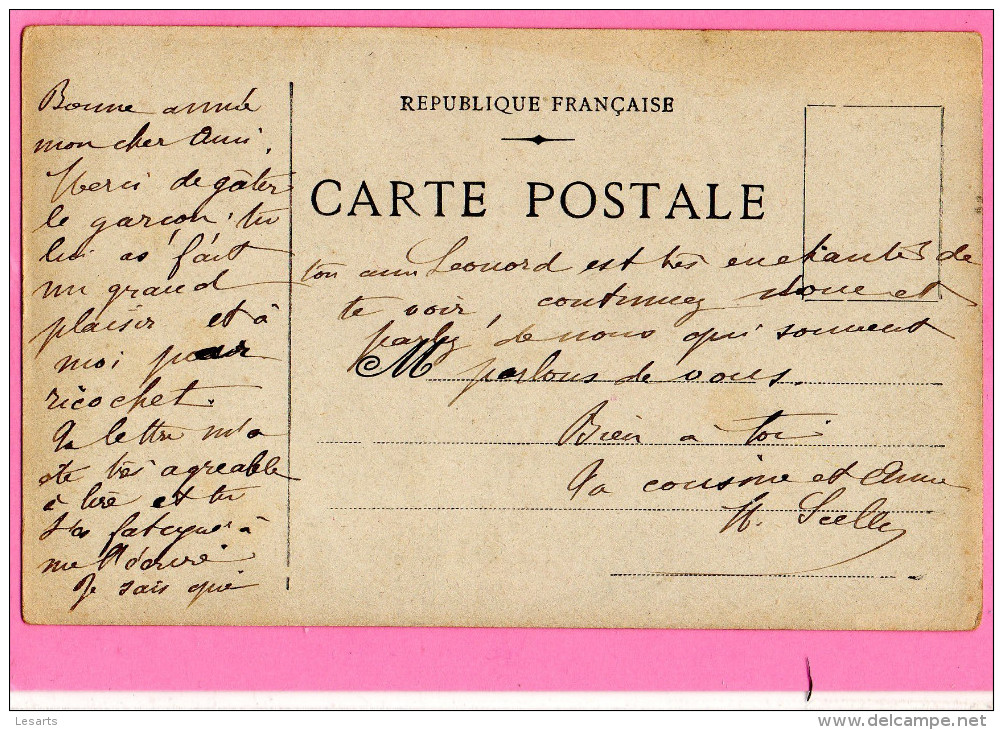 REPUBLIQUE FRANÇAISE
CARTE POSTALE
Bonne année
mon cher Ami,
Merci de gâter
le garçon, tu
lui as fait
un grand
plaisir et à
moi par
ricochet.
Ta lettre m'a
été très agréable
à lire et tu
t'as fatigué à
me l'écrire
Je sais que
ton ami Léonord est très enchanté de
te voir, continuez nous et
parlez de nous qui souvent
M parlons de vous.
Bien à toi
Ta cousine et Amie
Lesarts
www.delcampe.net